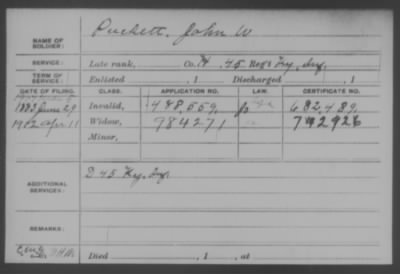 NAME OF SOLDIER: Puckett, John W
SERVICE: Late rank, Co. H, 45 Reg't Ky. Inf.
TERM OF SERVICE: Enlisted , 1 Discharged , 1
DATE OF FILING. CLASS. APPLICATION NO. LAW. CERTIFICATE NO.
1883 June 29 Invalid, 488,559. 682,489.
1912 Apr 11 Widow, 984271 742926
Minor,
ADDITIONAL SERVICES: D 45 Ky. Inf.
REMARKS:
Died , 1 , at